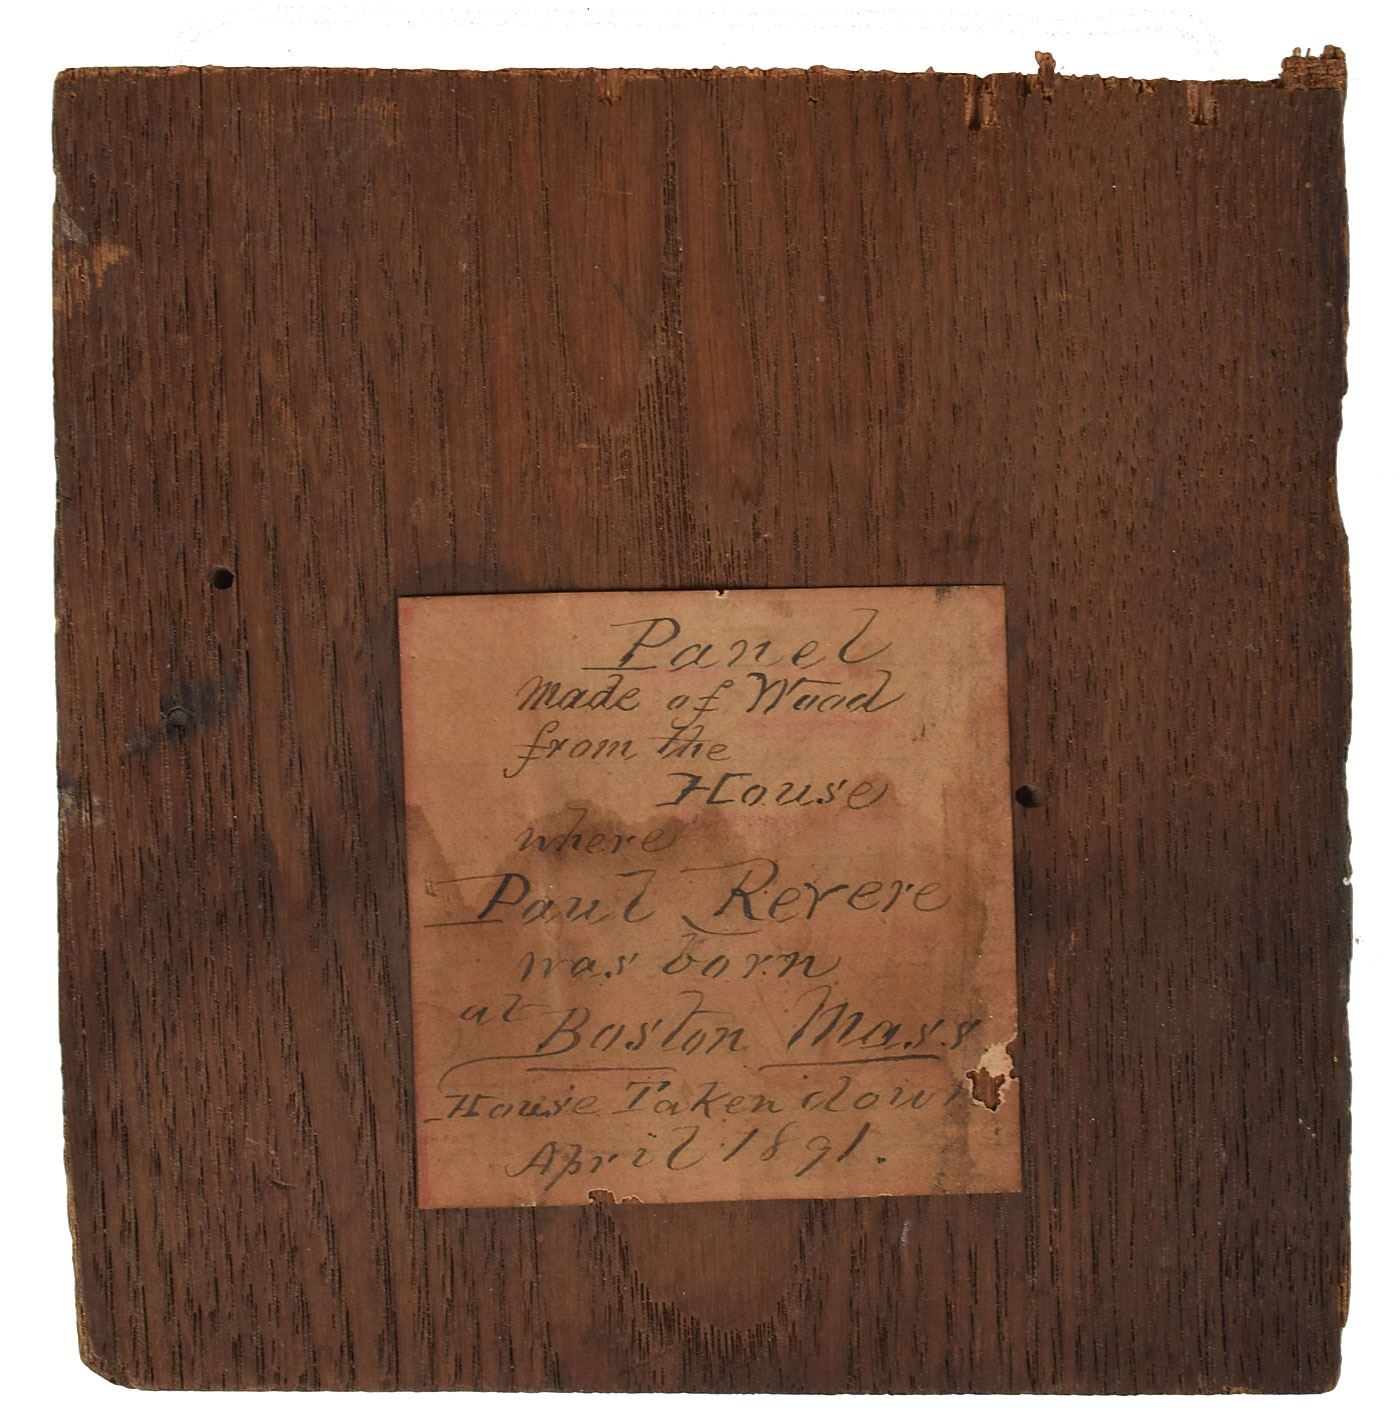 Panel
made of Wood
from the
House
where
Paul Revere
was born
at Boston Mass
House Taken down
April 1891.